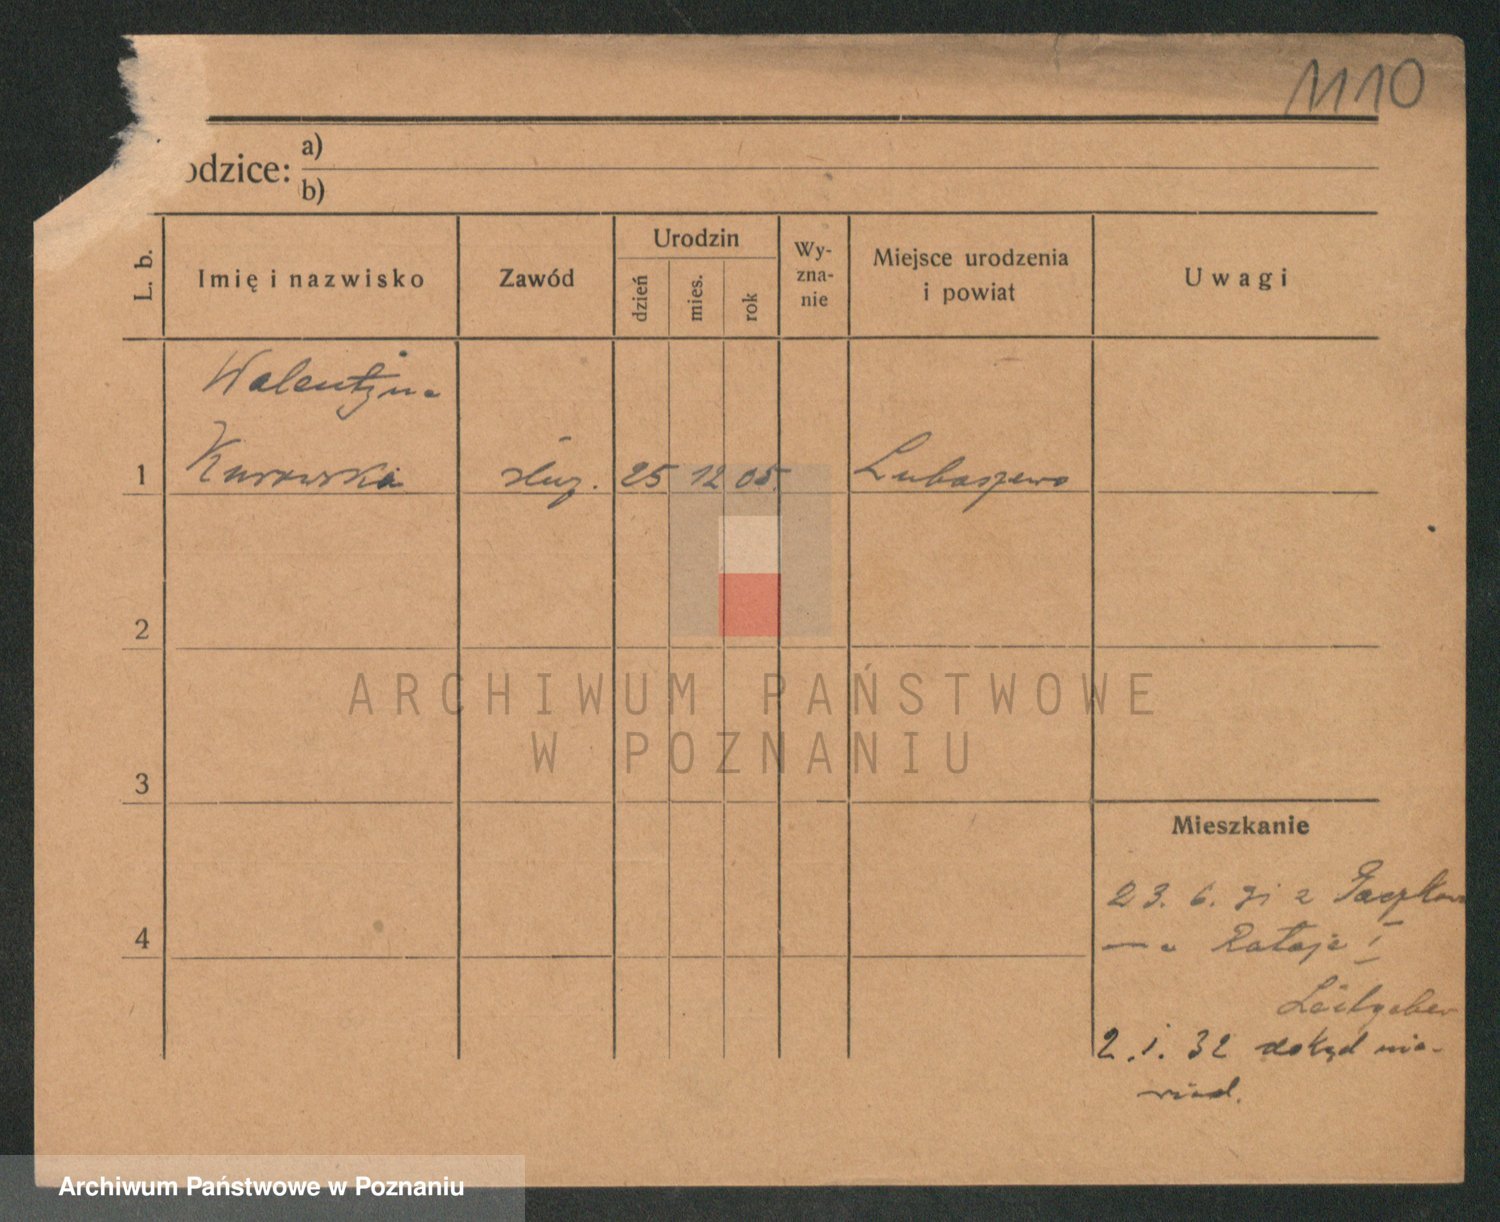 1110
odzice: a)
b)
L. b.
Imię i nazwisko
Zawód
Urodzin
dzień
mies.
rok
Wy-
zna-
nie
Miejsce urodzenia
i powiat
Uwagi
Walentyna
1 Kurowska służ. 25 12 05. Lubaszewo
2
3
4
Mieszkanie
23. 6. 31 z Paczkowa
— " Rataje 1
Leitgeber
2. 1. 32 dokąd nie-
wiad.
ARCHIWUM PAŃSTWOWE
W POZNANIU
Archiwum Państwowe w Poznaniu